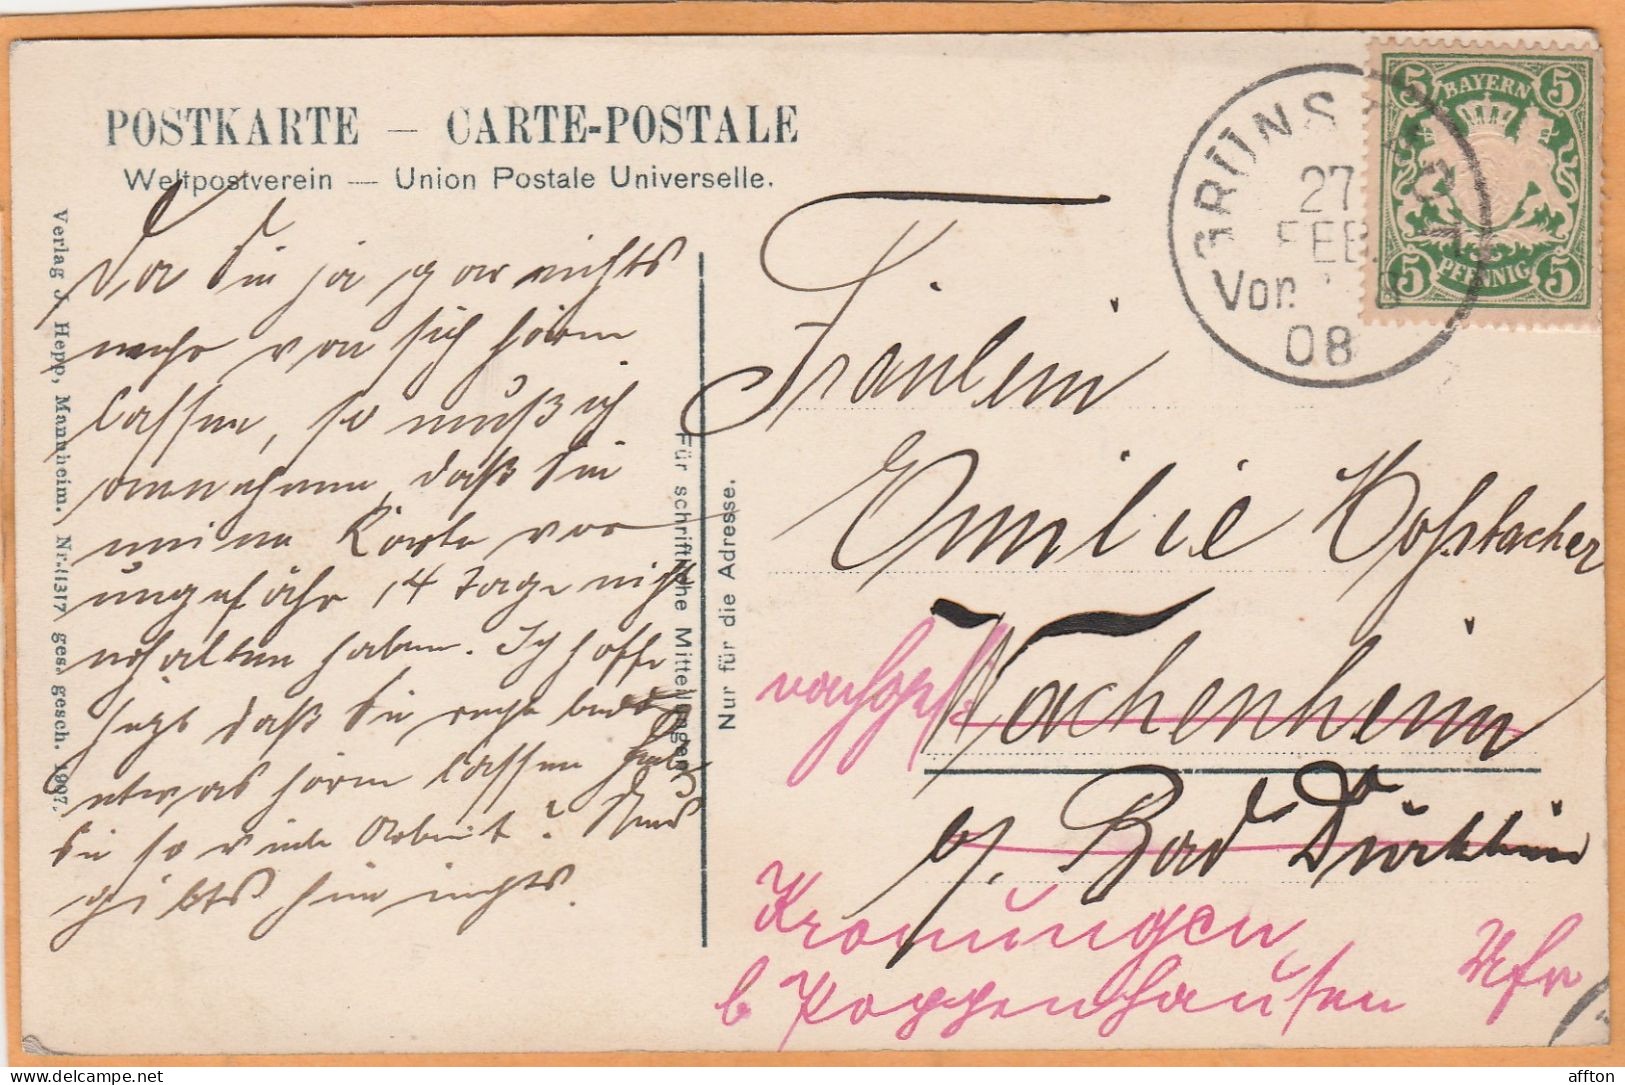 POSTKARTE – CARTE-POSTALE
Weltpostverein — Union Postale Universelle.
Verlag J. Hepp, Mannheim. Nr. 11317 ges. gesch. 1907.
Da Sie ja gar nichts
mehr von sich hören
lassen, so muß ich
annehmen, daß Sie
meine Karte vor
ungefähr 14 Tage nicht
erhalten haben. Ich hoffe
jetzt daß Sie recht bald
etwas hören lassen. Haben
Sie so viele Arbeit? Neues
gibts hier nichts.
Für schriftliche Mitteilungen
Nur für die Adresse.
GRÜNSTADT
27
FEB.
Vor.
08
BAYERN
5 5
5 5
PFENNIG
Fräulein
Emilie Hoßbacher
Wachenheim
b/. Bad Dürkheim
Kronungen
b Poppenhausen Ufr
affton